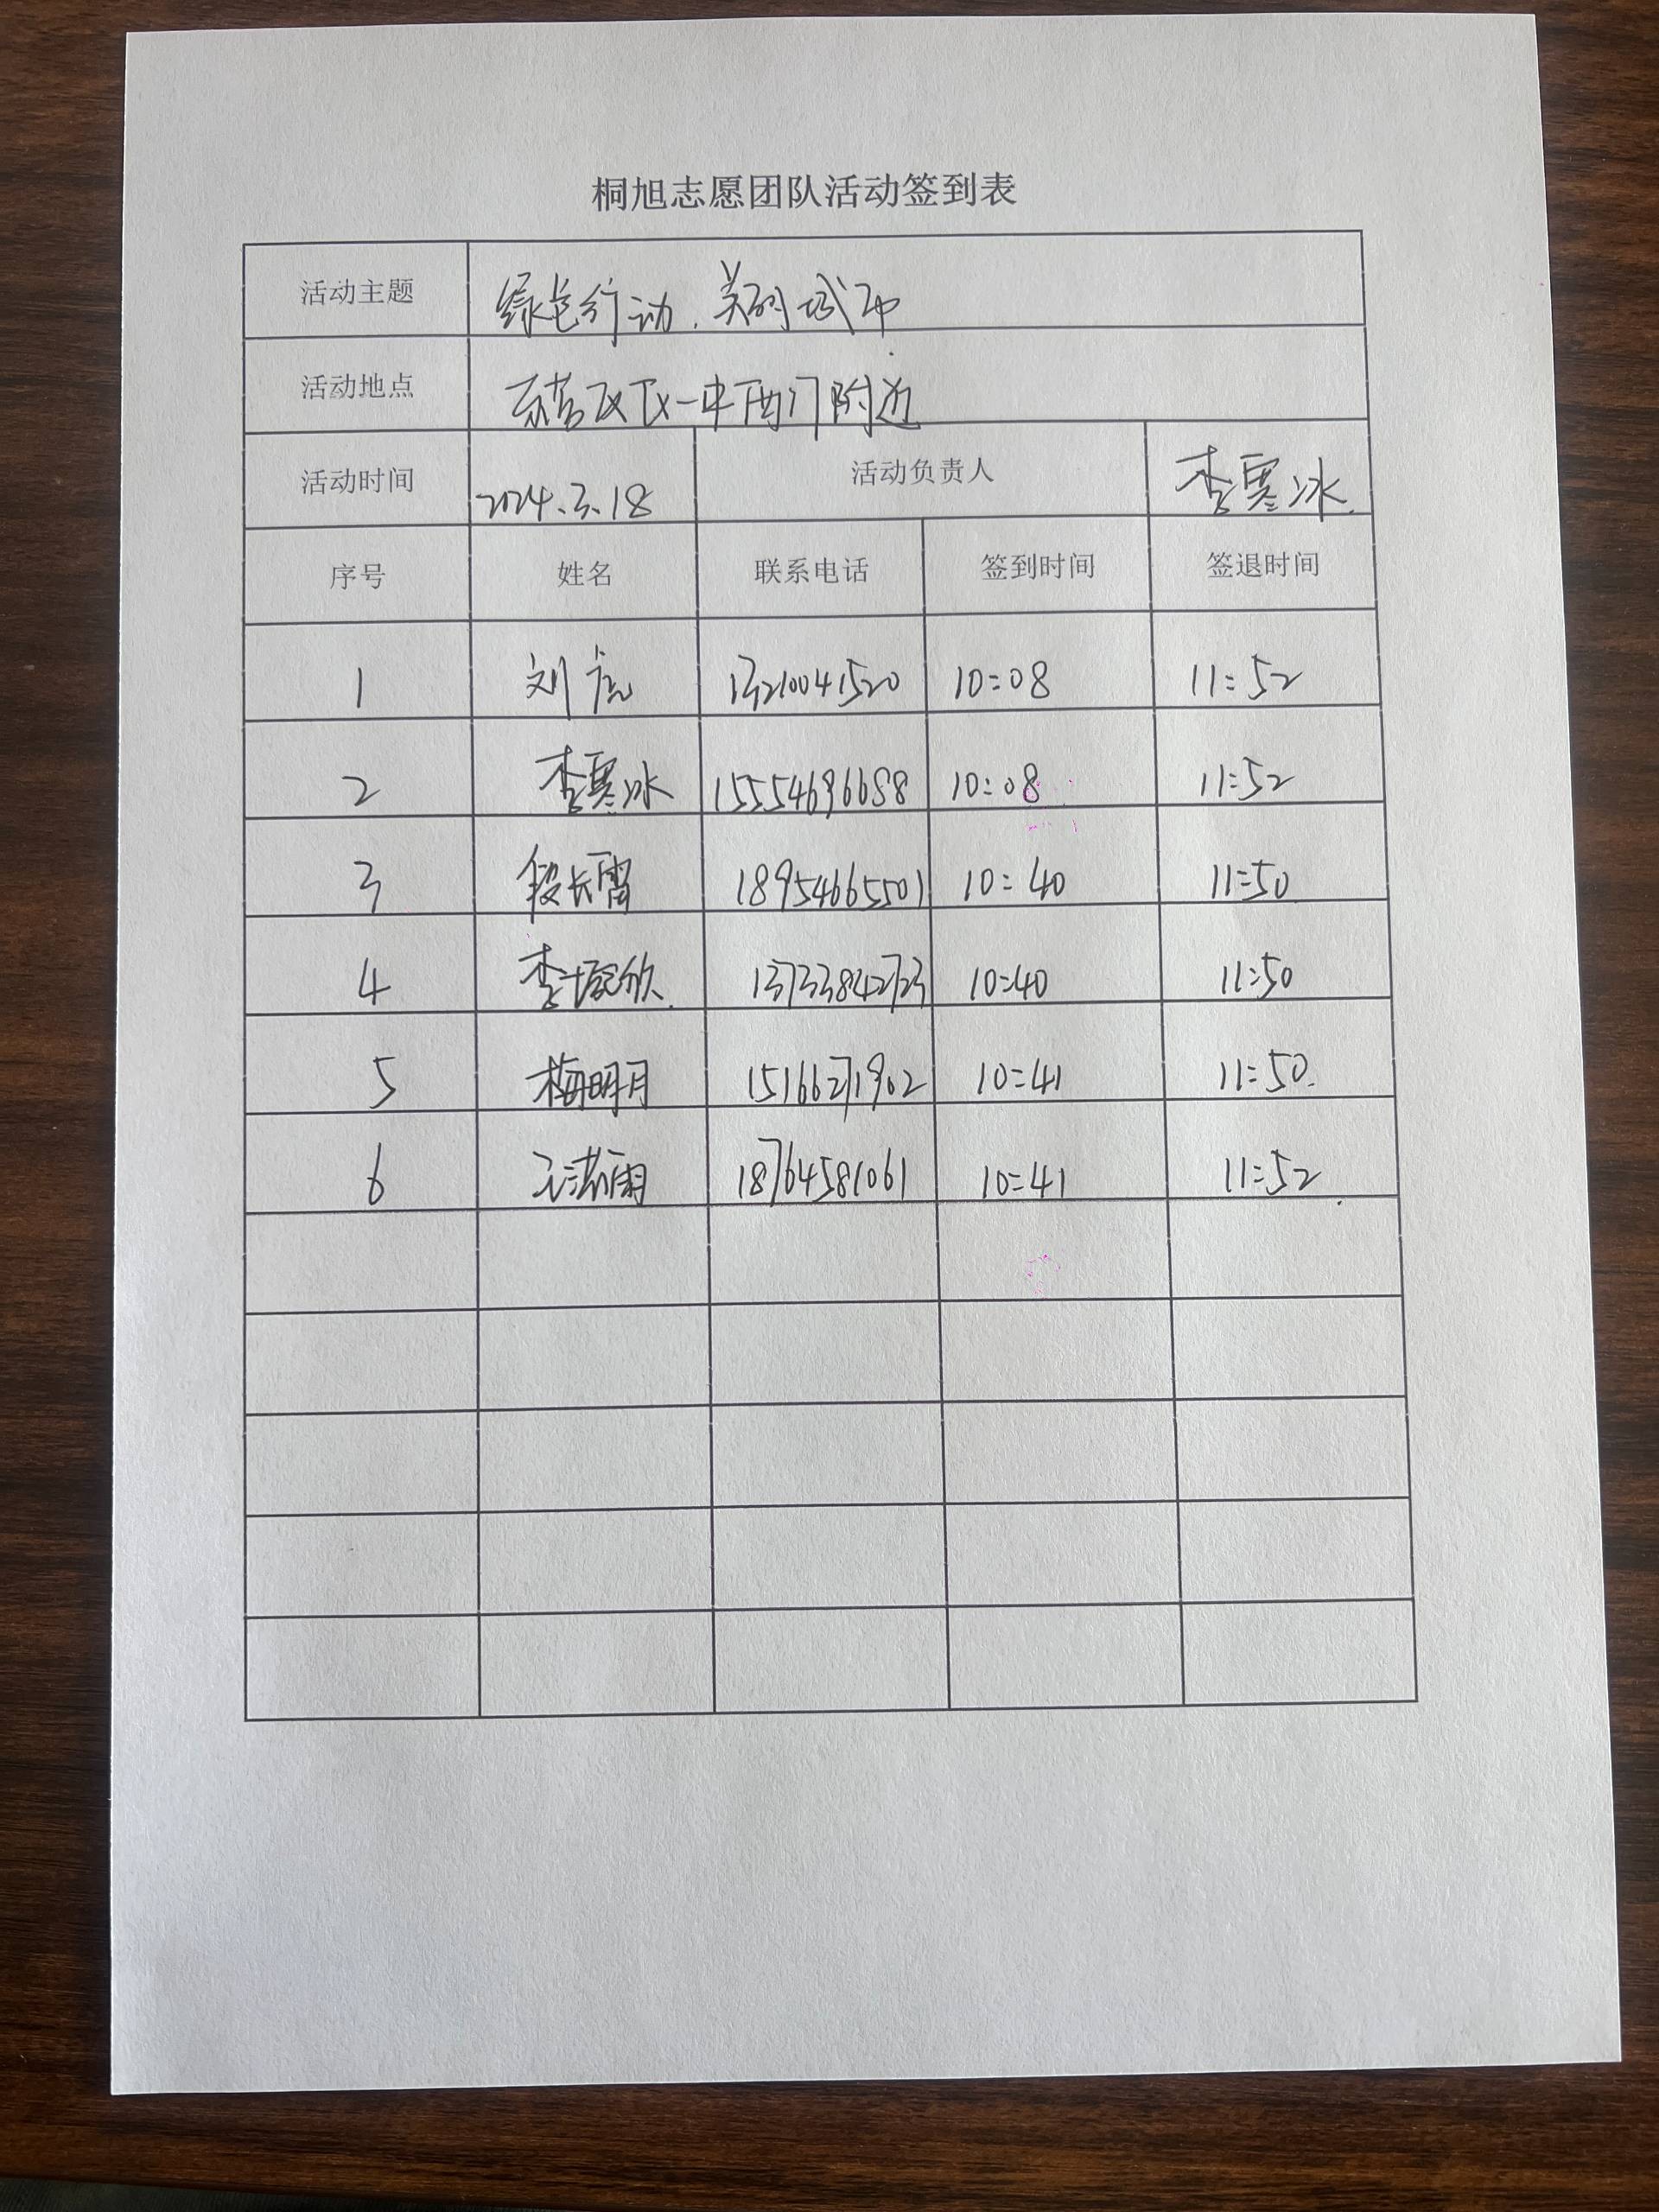 桐旭志愿团队活动签到表
活动主题 绿色行动,美丽城市
活动地点 东营区 一中西门附近
活动时间 2024.3.18 活动负责人 李寒冰
序号 姓名 联系电话 签到时间 签退时间
1 刘 13210041520 10:08 11:52
2 李寒冰 15554696688 10:08 11:52
3 段长霄 18954665501 10:40 11:50
4 李 欣 13733842723 10:40 11:50
5 梅明月 15166271902 10:41 11:50
6 王 雨 18764581061 10:41 11:52